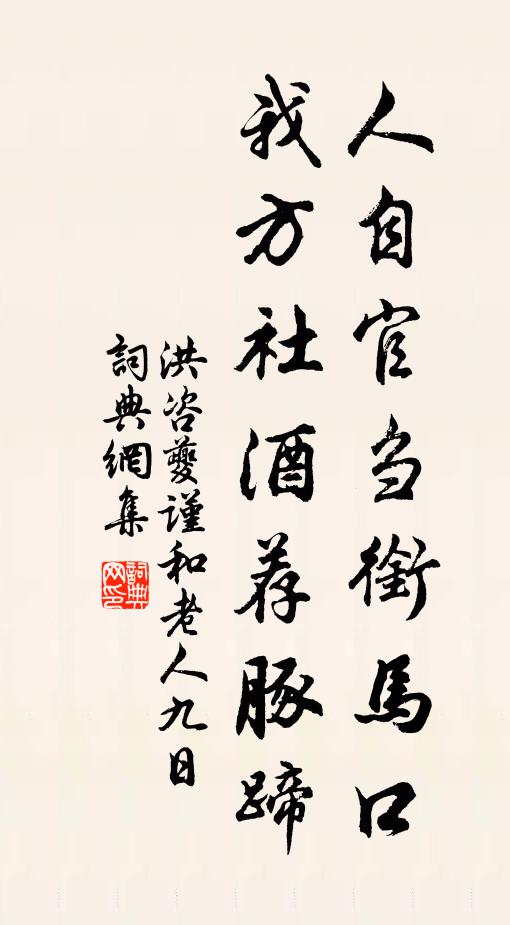 人自官当銜馬口
我方社酒荐豚蹄
洪咨夔謹和老人九日
詞典網集
詞典网印